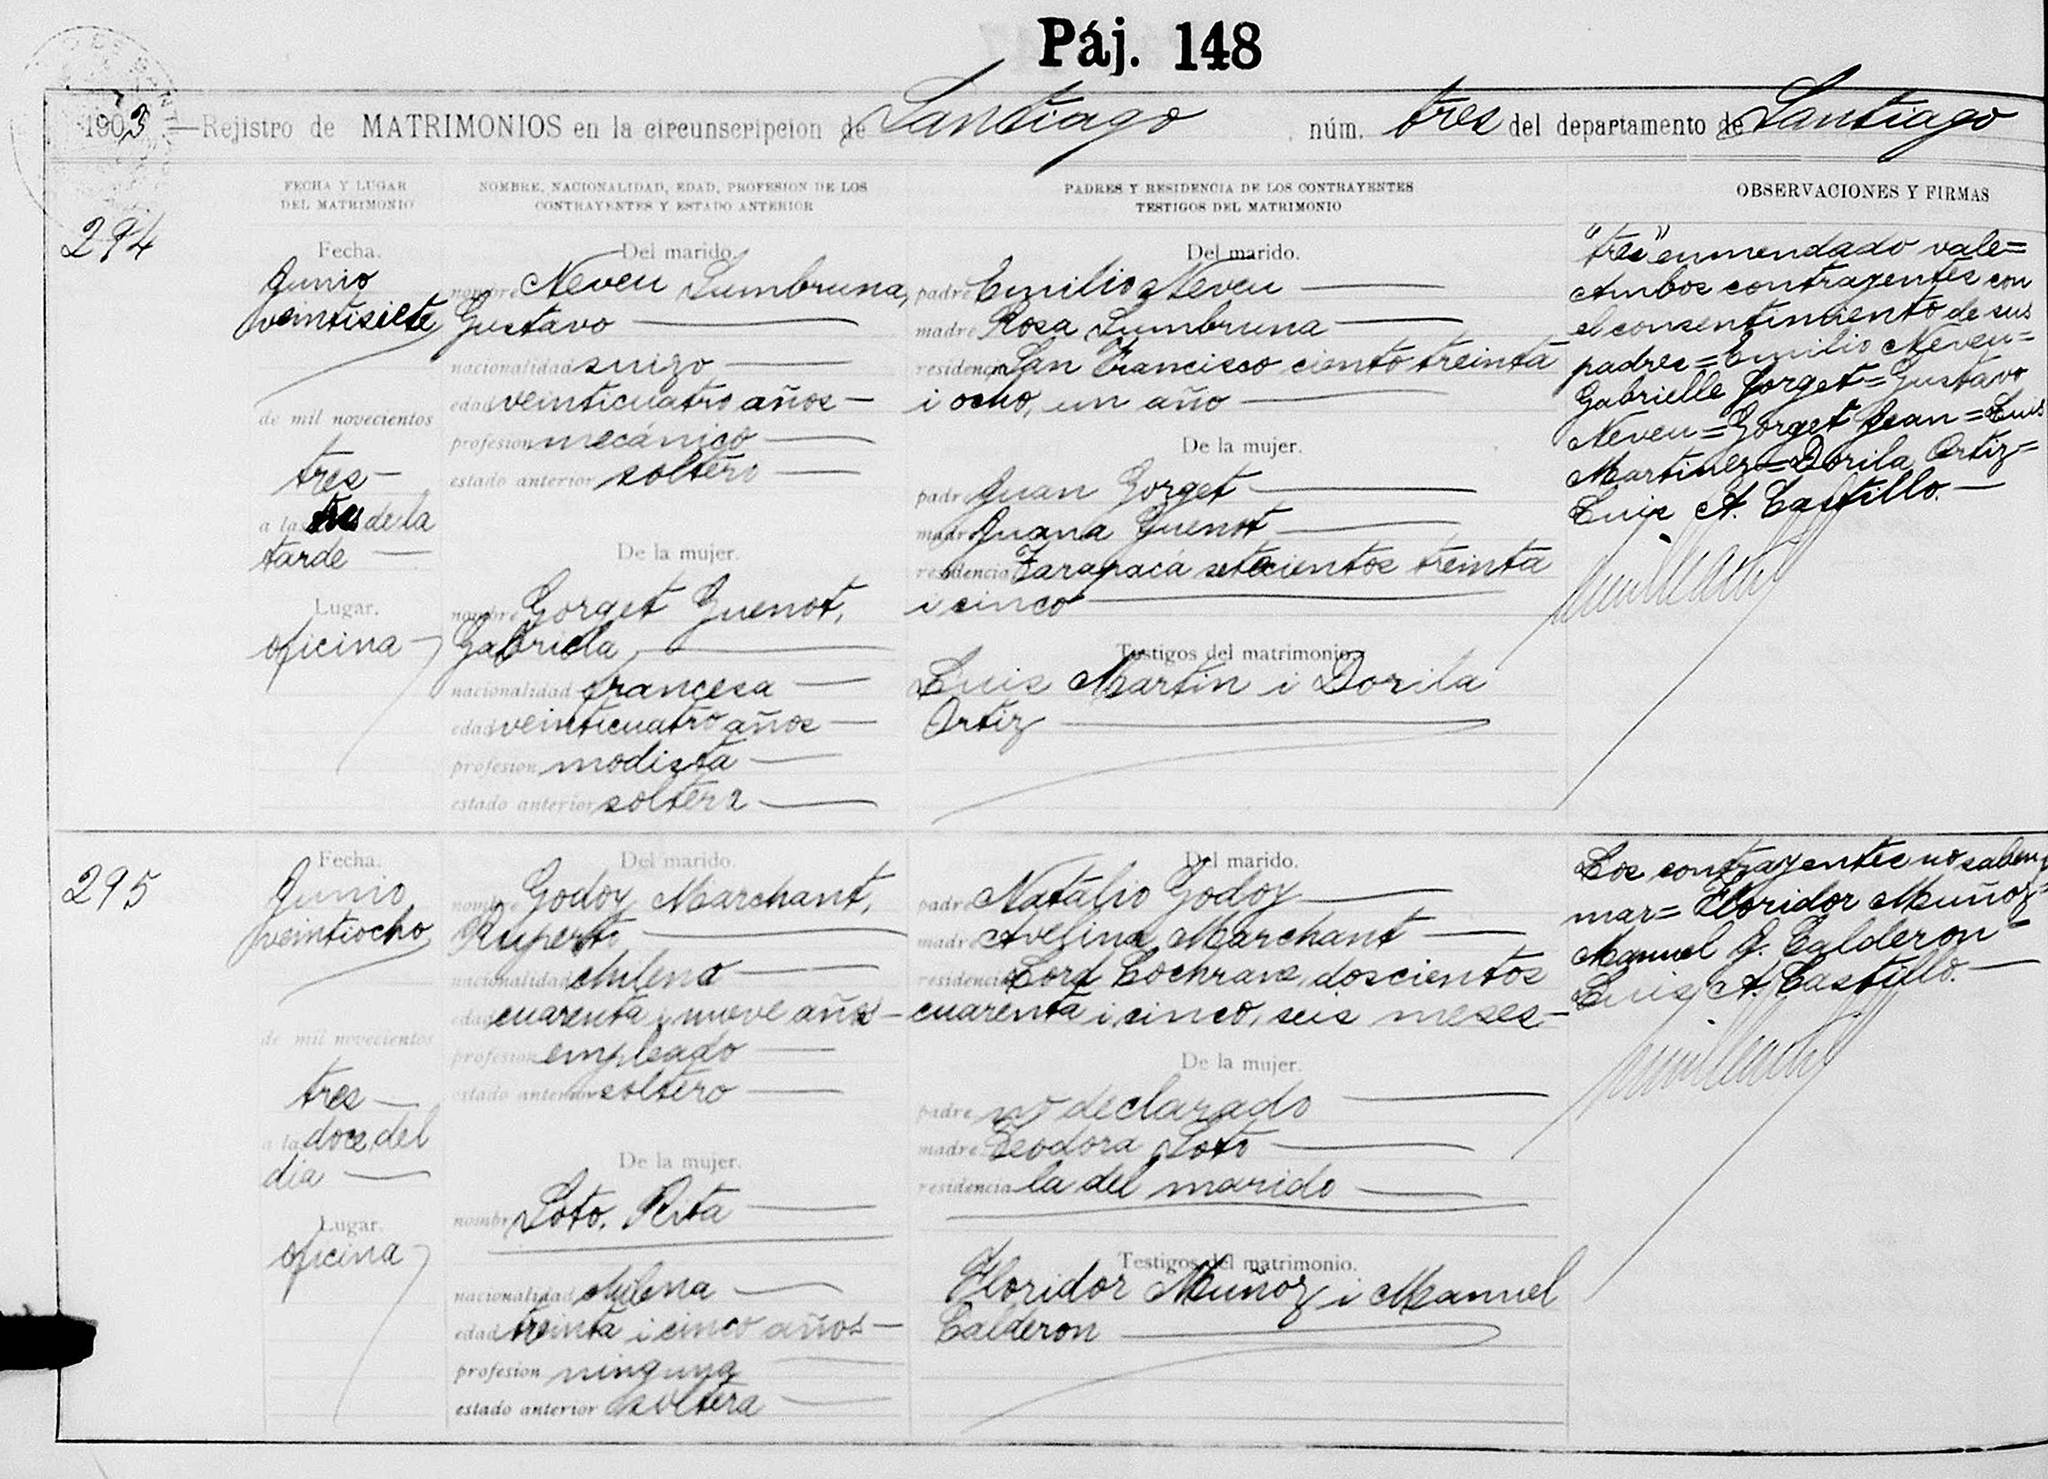 Páj. 148
1903 —Rejistro de MATRIMONIOS en la circunscripcion de Santiago núm. tres del departamento de Santiago
FECHA Y LUGAR
DEL MATRIMONIO
NOMBRE, NACIONALIDAD, EDAD, PROFESION DE LOS
CONTRAYENTES Y ESTADO ANTERIOR
PADRES Y RESIDENCIA DE LOS CONTRAYENTES
TESTIGOS DEL MATRIMONIO
OBSERVACIONES Y FIRMAS
294
Fecha.
Junio
veintisiete
de mil novecientos
tres—
a las tres de la
tarde —
Lugar.
oficina—
Del marido.
nombre Neveu Lumbruna,
Gustavo —
nacionalidad suizo —
edad veinticuatro años—
profesion mecánico —
estado anterior soltero —
De la mujer.
nombre Gorget Guenot,
Gabriela —
nacionalidad francesa —
edad veinticuatro años —
profesion modista —
estado anterior soltera —
Del marido.
padre Emilio Neveu —
madre Rosa Lumbruna —
residencia San Francisco ciento treinta
i ocho, un año —
De la mujer.
padre Juan Gorget —
madre Juana Guenot —
residencia Tarapacá setecientos treinta
i cinco —
Testigos del matrimonio.
Luis Martin i Dorila
Ortiz —
"tres" enmendado vale=
Ambos contrayentes con
el consentimiento de sus
padres= Emilio Neveu=
Gabrielle Gorget= Gustavo
Neveu= Gorget Jean= Luis
Martinez= Dorila Ortiz=
Luis A. Castillo.—
295
Fecha.
Junio
veintiocho
de mil novecientos
tres—
a las doce del
dia —
Lugar.
oficina
Del marido.
nombre Godoy Marchant,
Ruperto —
nacionalidad chileno —
edad cuarenta i nueve años—
profesion empleado —
estado anterior soltero —
De la mujer.
nombre Soto, Rita —
nacionalidad chilena —
edad treinta i cinco años—
profesion ninguna —
estado anterior soltera —
Del marido.
padre Natalio Godoy —
madre Avelina Marchant —
residencia Lord Cochrane, doscientos
cuarenta i cinco, seis meses—
De la mujer.
padre no declarado —
madre Teodora Soto —
residencia la del marido —
Testigos del matrimonio.
Floridor Muñoz i Manuel
Calderon —
Los contrayentes no saben
mar= Floridor Muñoz=
Manuel J. Calderon=
Luis A. Castillo.—